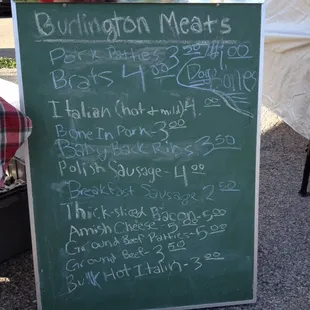 Burlington Meats
Pork Patties 3.50
Brats 4.00
Dog Bones
Italian (hot & mild) 4.00
Bone In Pork - 3.00
Baby Back Ribs 3.50
Polish Sausage - 4.00
Breakfast Sausage 2.50
Thick-sliced Bacon - 5.00
Amish Cheese - 5.00
Ground Beef Patties - 5.00
Ground Beef - 3.50
Bulk Hot Italin - 3.00